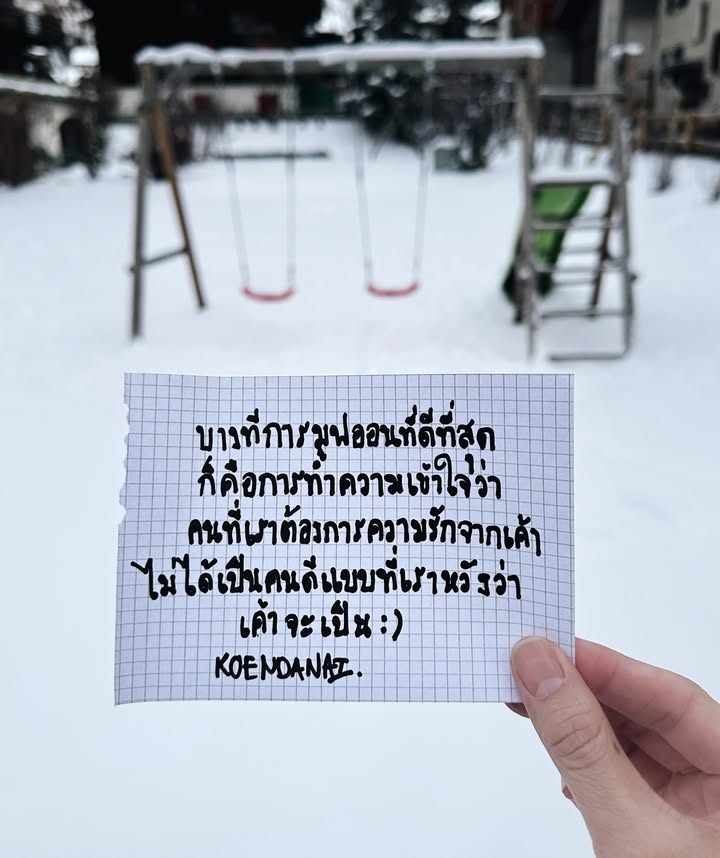 บางทีการมูฟออนที่ดีที่สุด
ก็คือการทำความเข้าใจว่า
คนที่เราต้องการความรักจากเค้า
ไม่ได้เป็นคนดีแบบที่เราหวังว่า
เค้าจะเป็น :)
KOENDANAI.